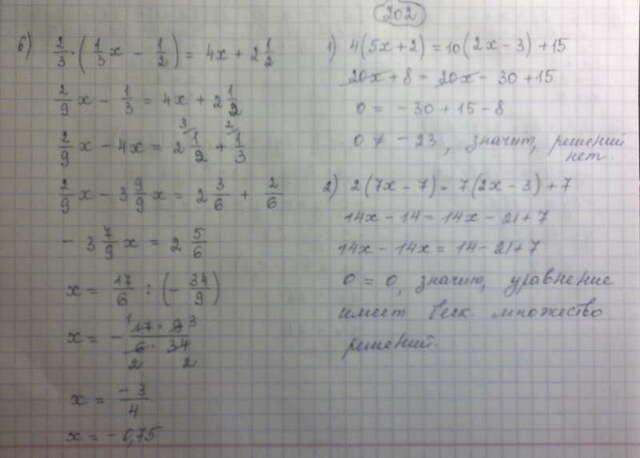 б) 2/3 · (1/3 x − 1/2) = 4x + 2 1/2
2/9 x − 1/3 = 4x + 2 1/2
2/9 x − 4x = 2 1/2 + 1/3
2/9 x − 3 9/9 x = 2 3/6 + 2/6
− 3 7/9 x = 2 5/6
x = 17/6 : (− 34/9)
x = − 17 · 9 / 6 · 34
x = −3/4
x = −0,75
202
1) 4(5x+2) = 10(2x−3)+15
20x + 8 − 20x − 30 + 15
0 = −30 + 15 − 8
0 ≠ −23, значит, решений
нет.
2) 2(7x−7) = 7(2x−3)+7
14x − 14 = 14x − 21 + 7
14x − 14x = 14 − 21 + 7
0 = 0, значит, уравнение
имеет беск. множество
решений.